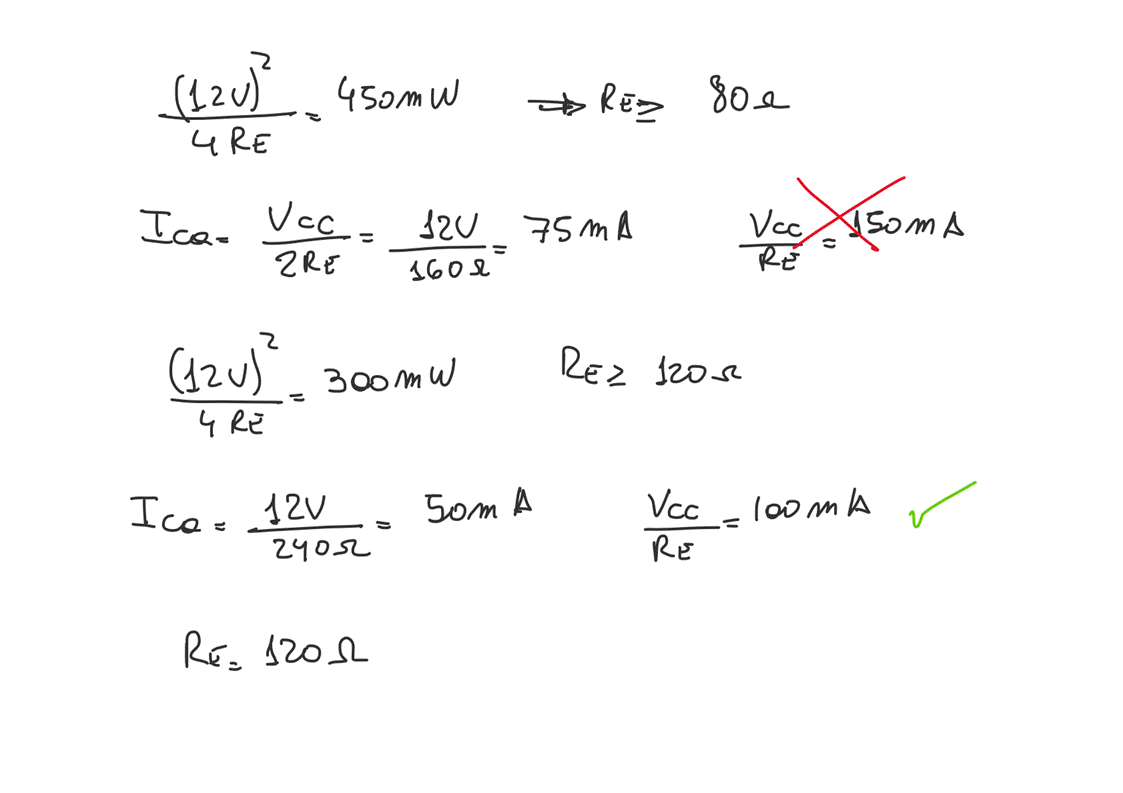 (12V)² / 4 RE = 450mW → RE ≥ 80Ω
ICQ = VCC / 2RE = 12V / 160Ω = 75mA VCC / RE = 150mA
(12V)² / 4 RE = 300mW RE ≥ 120Ω
ICQ = 12V / 240Ω = 50mA VCC / RE = 100mA ✓
RE = 120Ω